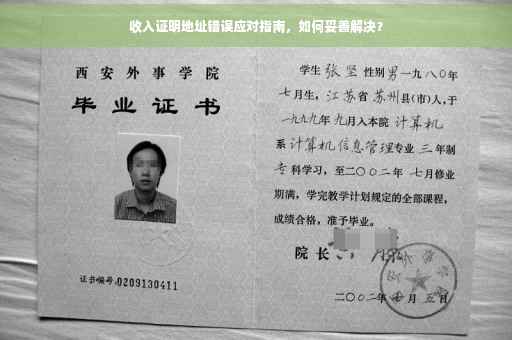 收入证明地址错误应对指南，如何妥善解决？
西安外事学院
毕业证书
证书编号:0209130411
学生 张坚 性别男 一九八〇年
七月生，江苏省 苏州县(市)人,于
一九九九年 九月入本院 计算机
系计算机信息管理专业 三 年制
专科学习，至二〇〇二年 七月修业
期满，学完教学计划规定的全部课程，
成绩合格，准予毕业。
院长
二〇〇二年 七月 五日